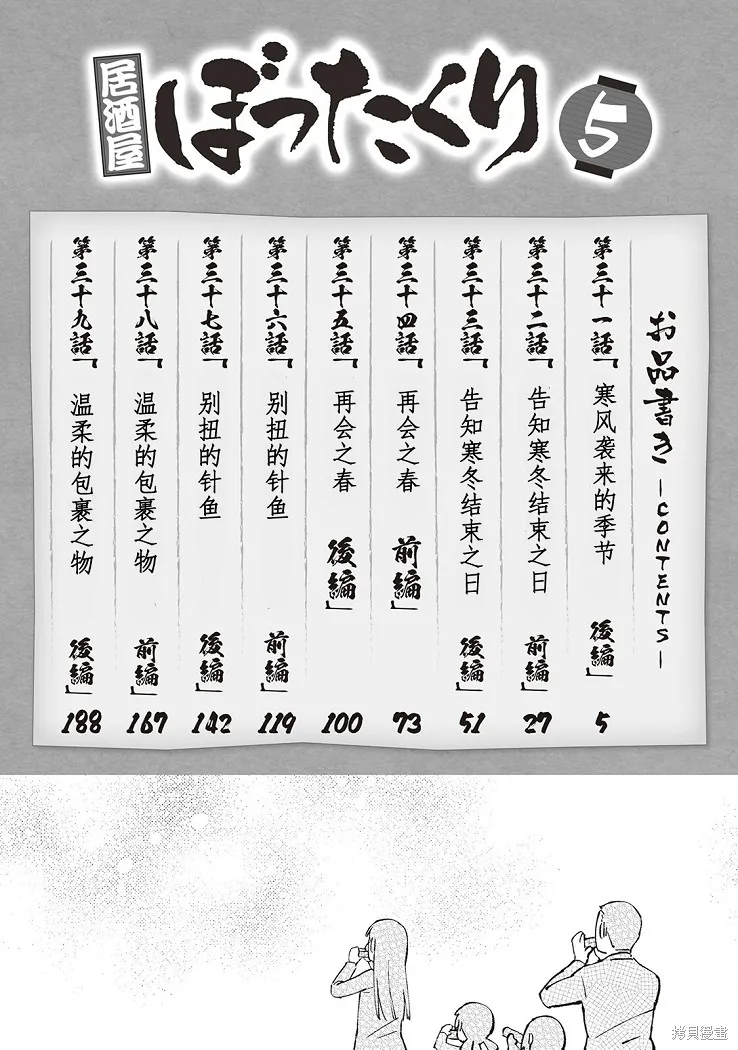 居酒屋
ぼったくり
5
お品書き －CONTENTS－
第三十一話「寒风袭来的季节 後編」 5
第三十二話「告知寒冬结束之日 前編」 27
第三十三話「告知寒冬结束之日 後編」 51
第三十四話「再会之春 前編」 73
第三十五話「再会之春 後編」 100
第三十六話「别扭的针鱼 前編」 119
第三十七話「别扭的针鱼 後編」 142
第三十八話「温柔的包裹之物 前編」 167
第三十九話「温柔的包裹之物 後編」 188
拷貝漫畫